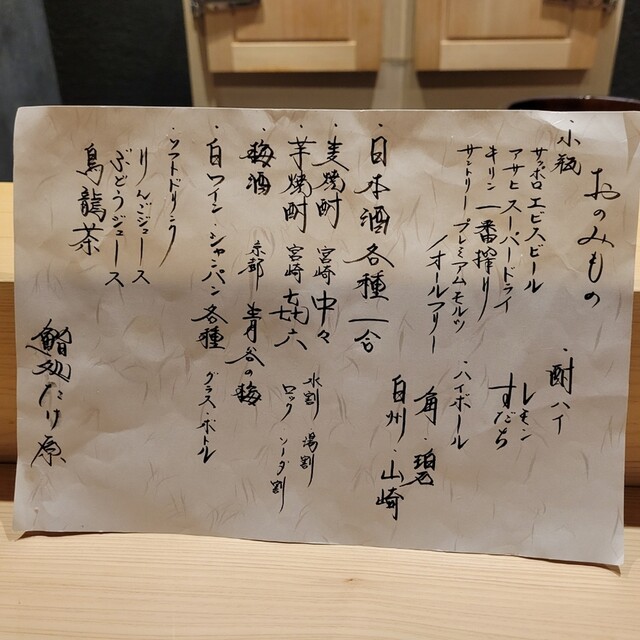 おのみもの
・小瓶
サッポロ ヱビスビール
アサヒ スーパードライ
キリン 一番搾り
サントリー プレミアムモルツ
/オールフリー
・酎ハイ
レモン
すだち
・ハイボール
角・碧
白州・山崎
・日本酒各種 一合
・麦焼酎 宮崎 中々
・芋焼酎 宮崎 㐂六
水割・湯割
ロック・ソーダ割
・梅酒 京都 青谷の梅
・白ワイン・シャンパン各種 グラス・ボトル
・ソフトドリンク
りんごジュース
ぶどうジュース
烏龍茶
鮨処たけ原